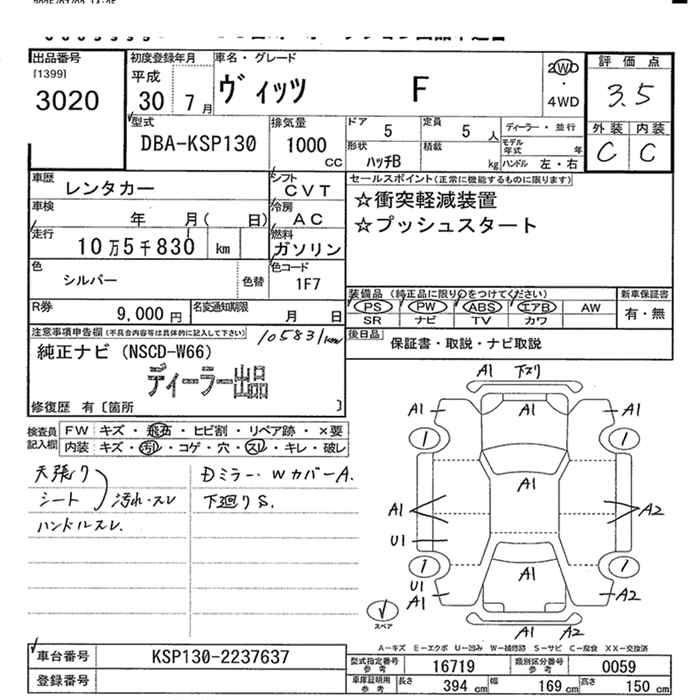 出品番号
[1399]
3020
初度登録年月
平成
30 7月
車名・グレード
ヴィッツ F
2WD
・
4WD
評価点
3.5
外装 内装
C C
型式
DBA-KSP130
排気量
1000
CC
ドア 5
定員 5 人
形状 ハッチB
積載 kg
ディーラー・並行
モデル年式 年
ハンドル 左・右
車歴 レンタカー
シフト CVT
車検 年 月( 日)
冷房 AC
走行 10万5千830 km
燃料 ガソリン
色 シルバー 色替
色コード 1F7
R券 9,000円
名変通知期限 月 日
セールスポイント(正常に機能するものに限ります)
☆衝突軽減装置
☆プッシュスタート
装備品(純正品に限り○をつけてください)
PS PW ABS エアB AW
SR ナビ TV カワ
新車保証書
有・無
後日品
保証書・取説・ナビ取説
注意事項申告欄(不具合内容等は具体的に記入して下さい)
105831km
純正ナビ (NSCD-W66)
ディーラー出品
修復歴 有〔箇所 〕
検査員記入欄
FW キズ・飛石・ヒビ割・リペア跡・×要
内装 キズ・汚れ・コゲ・穴・スレ・キレ・破レ
天張り
シート 汚れ・スレ
ハンドルスレ.
Dミラー・WカバーA.
下廻りS.
A1 下スリ
A1 A1
1 1
A1
A1 A2
U1
1 A1 1
U1
A1 A2
A1
スペア
A-キズ E-エクボ U-凹み W-補修跡 S-サビ C-腐食 XX-交換済
車台番号 KSP130-2237637
登録番号
型式指定番号 参考 16719
類別区分番号 参考 0059
車庫証明用 参考 長さ 394 cm 幅 169 cm 高さ 150 cm